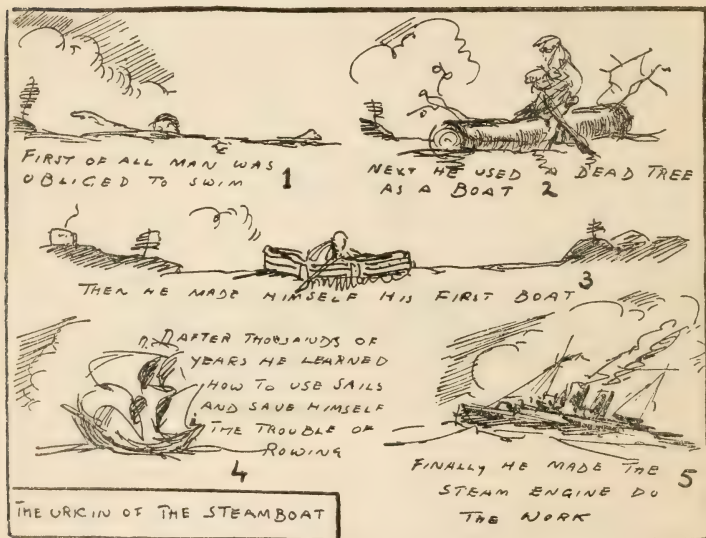 FIRST OF ALL MAN WAS
OBLIGED TO SWIM 1
NEXT HE USED A DEAD TREE
AS A BOAT 2
3
THEN HE MADE HIMSELF HIS FIRST BOAT
AFTER THOUSANDS OF
YEARS HE LEARNED
HOW TO USE SAILS
AND SAVE HIMSELF
THE TROUBLE OF
ROWING
4
FINALLY HE MADE THE 5
STEAM ENGINE DO
THE WORK
THE ORIGIN OF THE STEAMBOAT